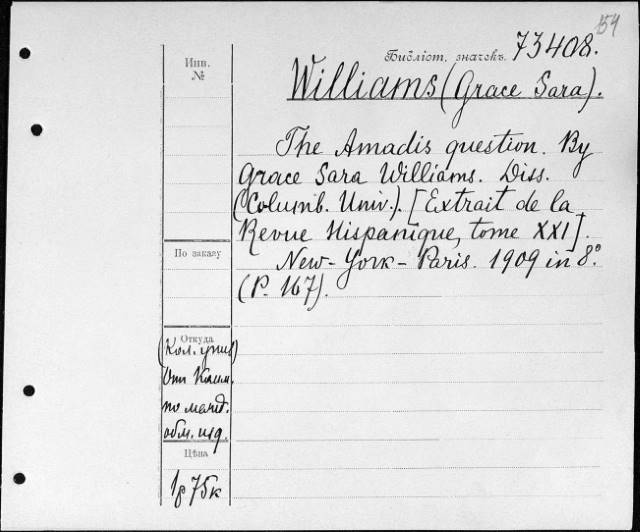 154
Библіот. значекъ. 73408.
Инв. №
Williams (Grace Sara).
The Amadis question. By
Grace Sara Williams. Diss.
(Columb. Univ.). [Extrait de la
Revue Hispanique, tome XXI].
По заказу
New-York-Paris. 1909 in 8°.
(P. 167).
Откуда
(Кол. унив)
От Комм.
по межд.
обм. изд.
Цѣна
1р 75к